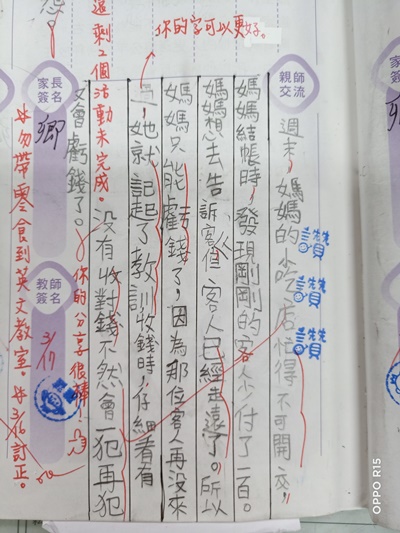 親師交流
週末，媽媽的小吃店忙得不可開交，
媽媽結帳時，發現剛剛的客人少付了一百。
媽媽想去告訴客人，但客人已經走遠了。所以
媽媽只能虧錢了，因為那位客人再沒來
，她就記起了教訓收錢時，仔細看有
没有收對錢不然會一犯再犯
又會虧錢了。
你的分享很棒！
讚讚讚
你的字可以更好。
還剩2個活動未完成。
家長簽名
教師簽名
3/17
※勿帶零食到英文教室。
3/16訂正。
OPPO R15